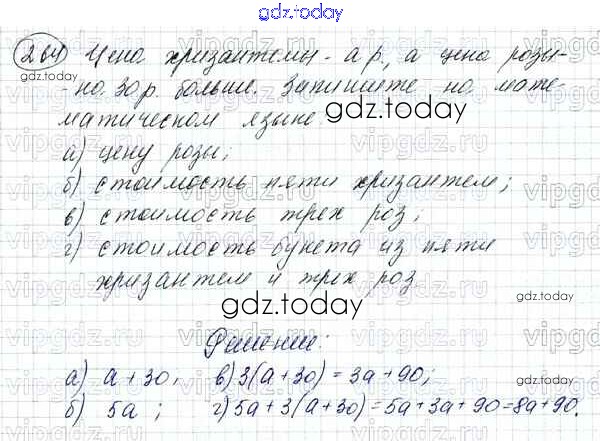 gdz.today
264 Цена хризантемы - а р., а цена розы-
- на 30 р. больше. Запишите на мате-
матическом языке
gdz.today
gdz.today
а) цену розы;
б) стоимость пяти хризантем;
в) стоимость трех роз;
г) стоимость букета из пяти
хризантем и трех роз
gdz.today
Решение:
а) а + 30, в) 3(а + 30) = 3а + 90;
б) 5а ; г) 5а + 3(а + 30) = 5а + 3а + 90 = 8а + 90.
gdz.today